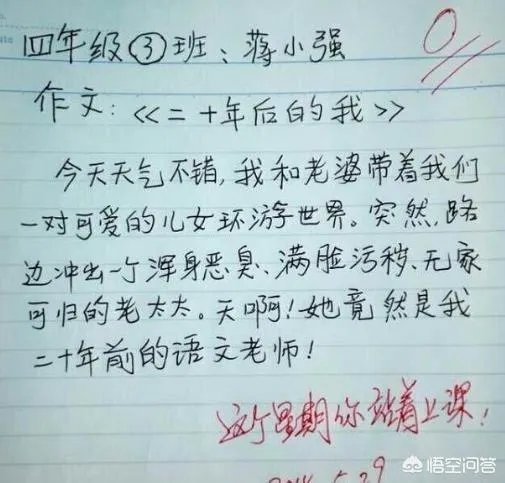 0
四年级③班：蒋小强
作文：《二十年后的我》
今天天气不错，我和老婆带着我们
一对可爱的儿女环游世界。突然，路
边冲出一个浑身恶臭、满脸污秽、无家
可归的老太太。天啊！她竟然是我
二十年前的语文老师！
这个星期你站着上课！
5.29
悟空问答